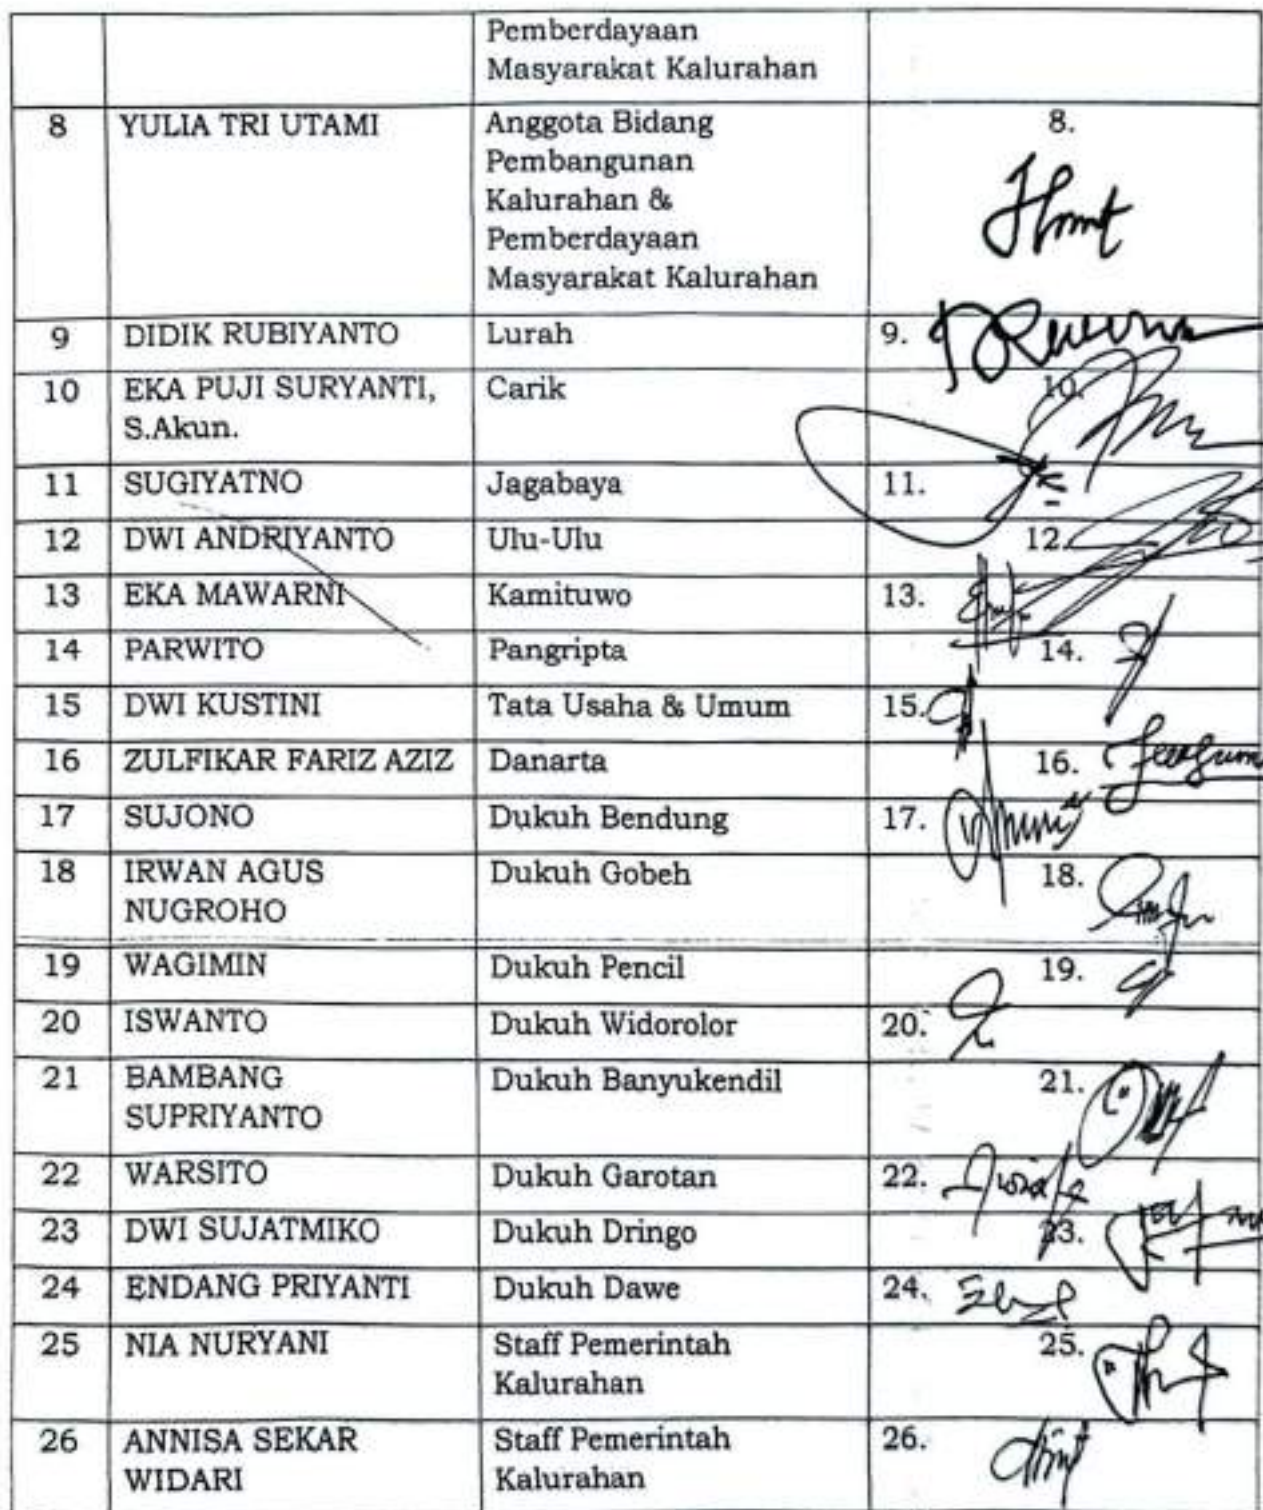 Pemberdayaan
Masyarakat Kalurahan
8 YULIA TRI UTAMI Anggota Bidang 8.
Pembangunan
Kalurahan &
Pemberdayaan
Masyarakat Kalurahan
9 DIDIK RUBIYANTO Lurah 9.
10 EKA PUJI SURYANTI, Carik 10.
S.Akun.
11 SUGIYATNO Jagabaya 11.
12 DWI ANDRIYANTO Ulu-Ulu 12.
13 EKA MAWARNI Kamituwo 13.
14 PARWITO Pangripta 14.
15 DWI KUSTINI Tata Usaha & Umum 15.
16 ZULFIKAR FARIZ AZIZ Danarta 16.
17 SUJONO Dukuh Bendung 17.
18 IRWAN AGUS Dukuh Gobeh 18.
NUGROHO
19 WAGIMIN Dukuh Pencil 19.
20 ISWANTO Dukuh Widorolor 20.
21 BAMBANG Dukuh Banyukendil 21.
SUPRIYANTO
22 WARSITO Dukuh Garotan 22.
23 DWI SUJATMIKO Dukuh Dringo 23.
24 ENDANG PRIYANTI Dukuh Dawe 24.
25 NIA NURYANI Staff Pemerintah 25.
Kalurahan
26 ANNISA SEKAR Staff Pemerintah 26.
WIDARI Kalurahan